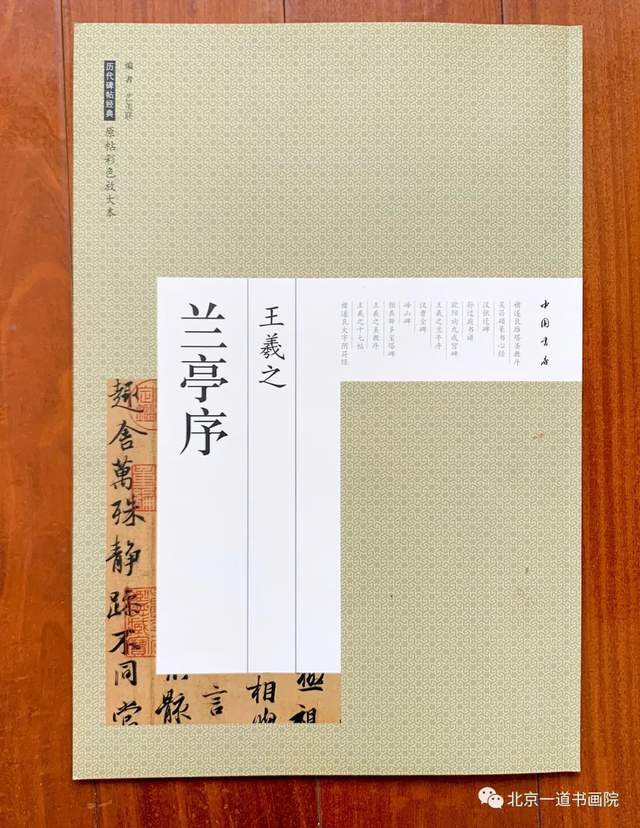 编者 艺美联
历代碑帖经典 原帖彩色放大本
中国书店
褚遂良雁塔圣教序
吴昌硕篆书心经
汉张迁碑
孙过庭书谱
欧阳询九成宫碑
王羲之兰亭序
汉曹全碑
峄山碑
颜真卿多宝塔碑
王羲之圣教序
王羲之十七帖
褚遂良大字阴符经
王羲之
兰亭序
極視
相
言
趣舍萬殊静躁不同當
北京一道书画院